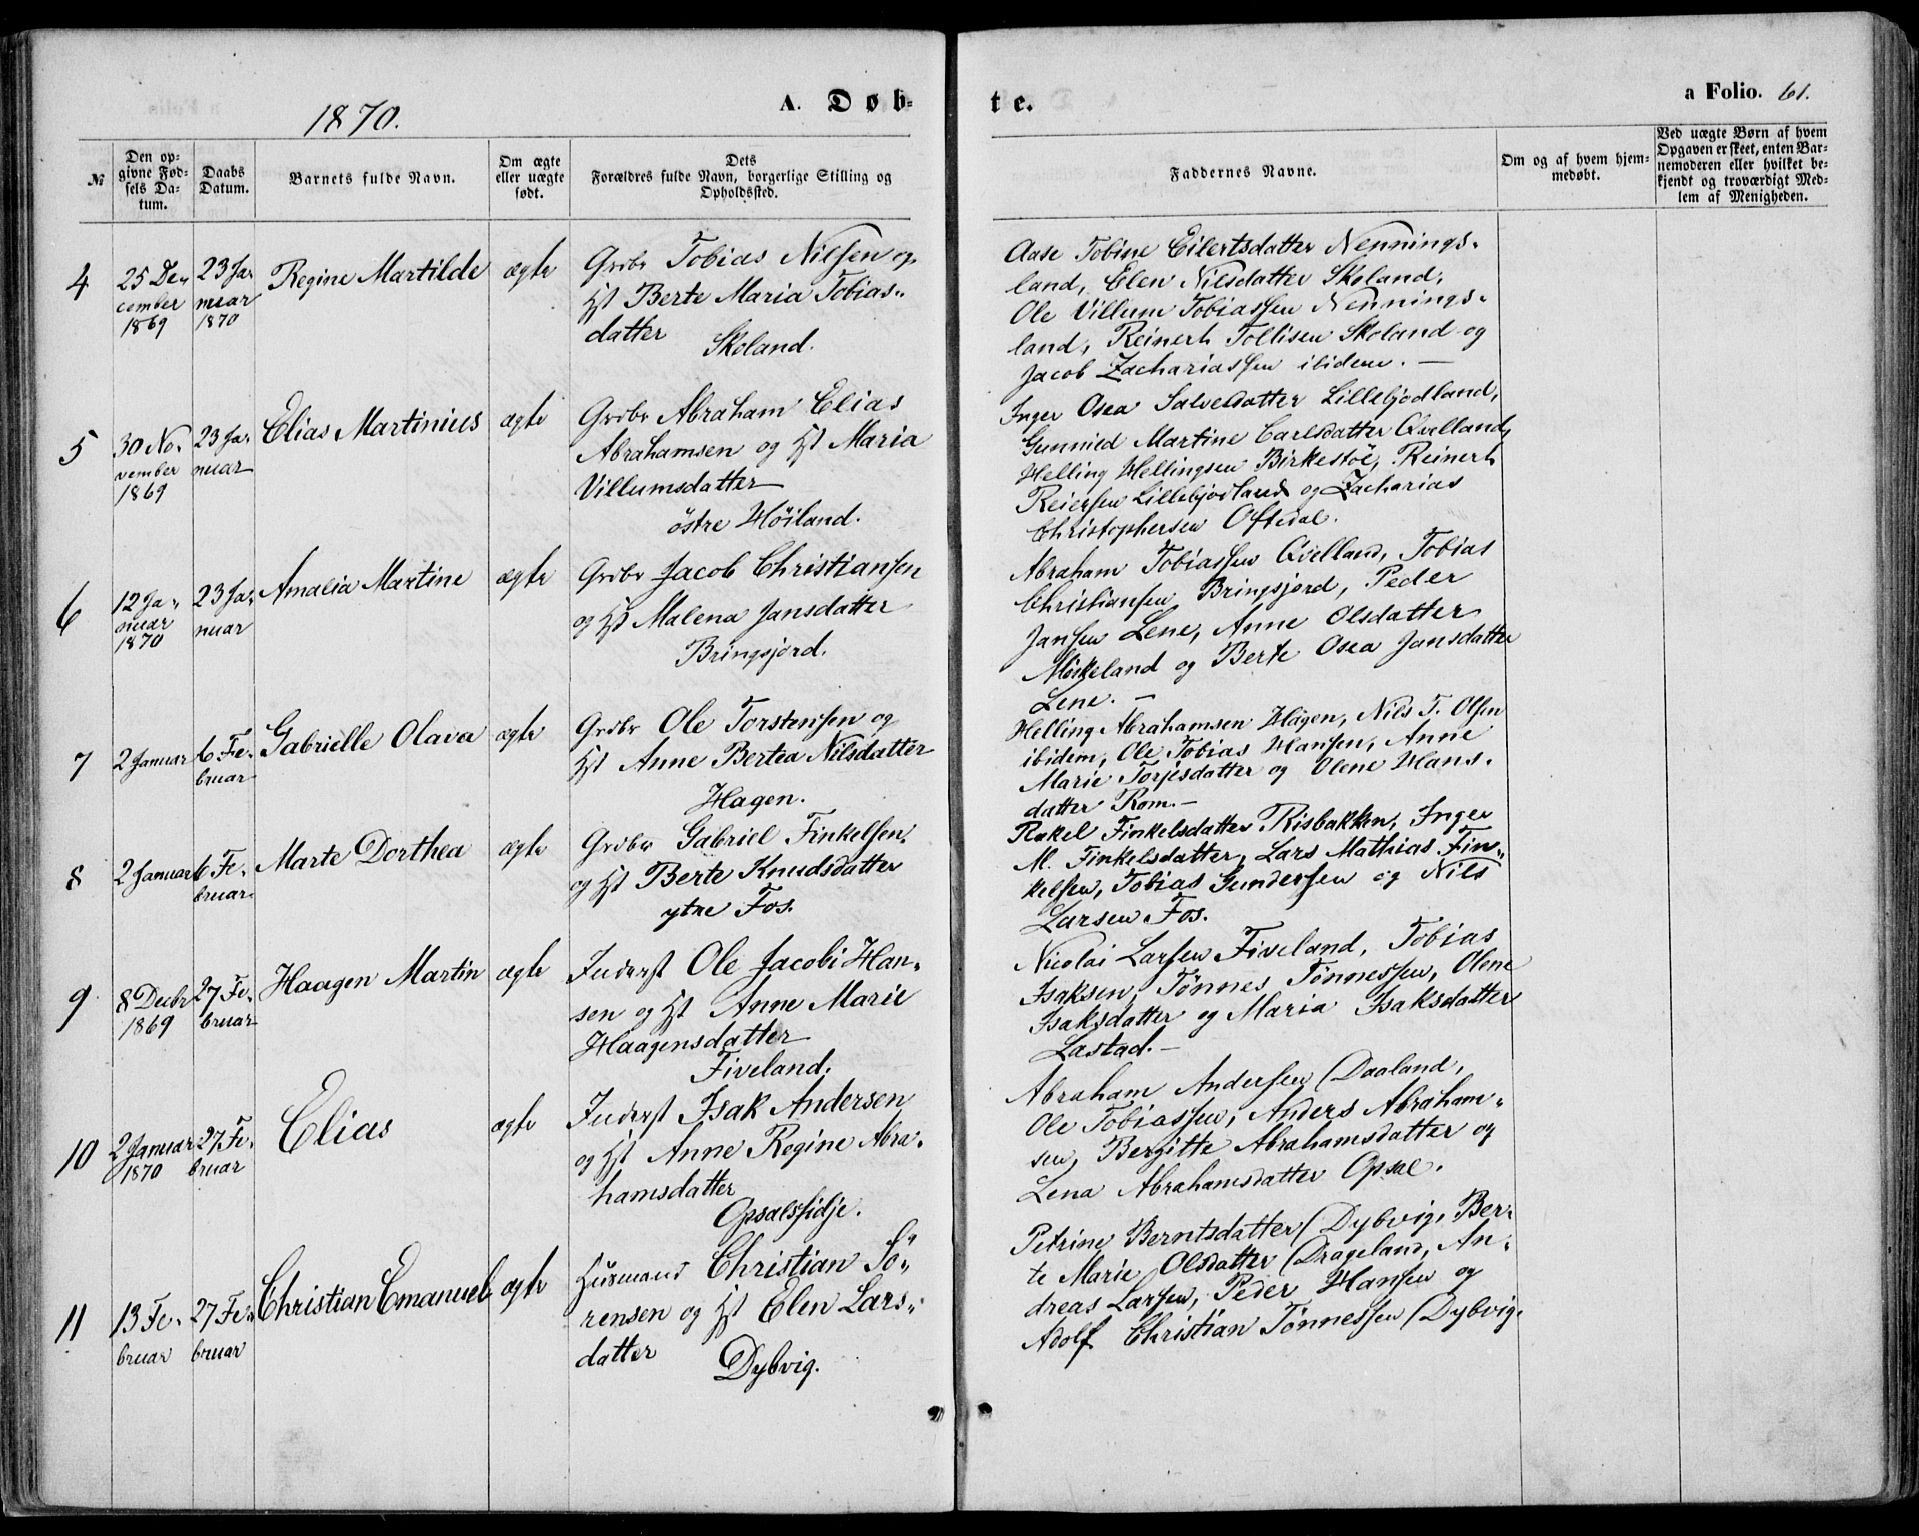 1870.
A. Døb-
te.
a Folio. 61.
№
Den op-
givne Fød-
sels Da-
tum.
Daabs
Datum.
Barnets fulde Navn.
Om ægte
eller uægte
født.
Dets
Forældres fulde Navn, borgerlige Stilling og
Opholdssted.
Faddernes Navne.
Om og af hvem hjem-
medøbt.
Ved uægte Børn af hvem
Opgaven er skeet, enten Bar-
nemoderen eller hvilket be-
kjendt og troværdigt Med-
lem af Menigheden.
4
25 De-
cember
1869
23 Ja-
nuar
1870
Regine Martilde
ægte
Grdbr Tobias Nilsen og
Hst Berte Maria Tobias-
datter
Skoland.
Aase Tobine Eilertsdatter Nennings-
land, Elen Nilsdatter Skoland,
Ole Villum Tobiassen Nennings-
land, Reinert Tollisen Skoland og
Jacob Zachariassen ibidem. —
5
30 No-
vember
1869
23 Ja-
nuar
Elias Martinius
ægte
Grdbr Abraham Elias
Abrahamsen og Hst Maria
Villumsdatter
östre Höiland.
Inger Osea Salvesdatter Lillebjodland,
Gunnied Martine Carlsdatter Qvelland,
Helling Hellingsen Birkestöl, Reinert
Reiersen Lillebjodland og Zacharias
Christophersen Oftedal.
6
12 Ja-
nuar
1870
23 Ja-
nuar
Amalia Martine
ægte
Grdbr Jacob Christiansen
og Hst Malena Jansdatter
Bringsjord.
Abraham Tobiassen Qvelland, Tobias
Christiansen Bringsjord, Peder
Jansen Lene, Anne Olsdatter
Möskeland og Berte Osea Jansdatter
Lene. —
7
2 Januar
6 Fe-
bruar
Gabrielle Olava
ægte
Grdbr Ole Torstensen og
Hst Anne Bertea Nilsdatter
Hagen.
Helling Abrahamsen Hagen, Nils T. Olsen
ibidem, Ole Tobias Hansen, Anne
Marie Torjesdatter og Olene Hans-
datter Rom. —
8
2 Januar
6 Fe-
bruar
Marte Dorthea
ægte
Grdbr Gabriel Finkelsen
og Hst Berte Knudsdatter
ytre Fos.
Rakel Finkelsdatter Risbakken, Inger
M. Finkelsdatter, Lars Mathias Fin-
kelsen, Tobias Gundersen og Nils
Larsen Fos.
9
8 Decbr
1869
27 Fe-
bruar
Haagen Martin
ægte
Inderst Ole Jacobi Han-
sen og Hst Anne Marie
Haagensdatter
Fiveland.
Nicolai Larsen Fiveland, Tobias
Isaksen, Tønnes Tønnessen, Olene
Isaksdatter og Maria Isaksdatter
Lastad. —
10
2 Januar
1870
27 Fe-
bruar
Elias
ægte
Inderst Isak Andersen
og Hst Anne Regine Abra-
hamsdatter
Opsalsfidje.
Abraham Andersen Daaland,
Ole Tobiassen, Anders Abraham-
sen, Bergitte Abrahamsdatter og
Lena Abrahamsdatter Opsal.
11
13 Fe-
bruar
27 Fe-
bruar
Christian Emanuel
ægte
Husmand Christian Sö-
rensen og Hst Elen Lars-
datter
Dybvig.
Petrine Berntsdatter Dybvig, Ber-
te Marie Olsdatter Drageland, An-
dreas Larsen, Peder Hansen og
Adolf Christian Tønnessen Dybvig.